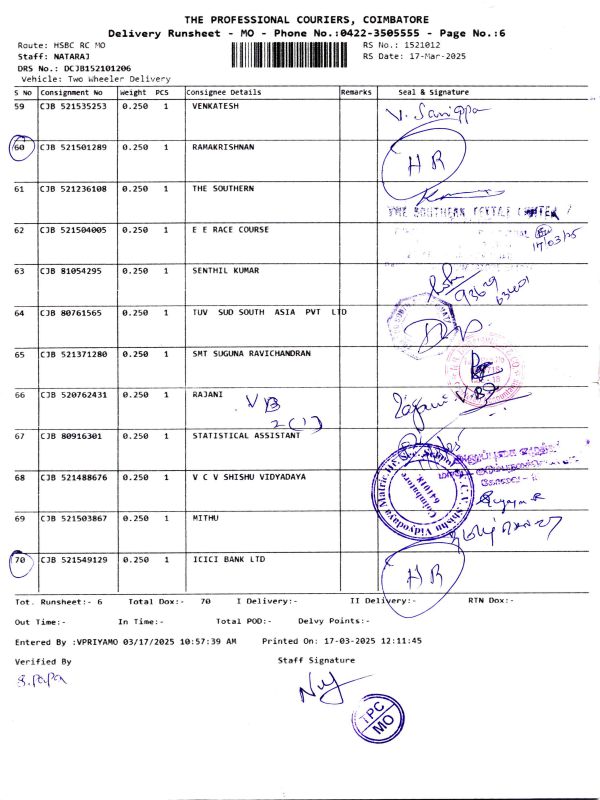 THE PROFESSIONAL COURIERS, COIMBATORE
Delivery Runsheet - MO - Phone No.:0422-3505555 - Page No.:6
Route: HSBC RC MO RS No.: 1521012
Staff: NATARAJ RS Date: 17-Mar-2025
DRS No.: DCJB152101206
Vehicle: Two Wheeler Delivery
S No Consignment No Weight PCS Consignee Details Remarks seal & signature
59 CJB 521535253 0.250 1 VENKATESH
60 CJB 521501289 0.250 1 RAMAKRISHNAN HR
61 CJB 521236108 0.250 1 THE SOUTHERN
THE SOUTHERN TEXTILE CENTER
62 CJB 521504005 0.250 1 E E RACE COURSE
17/03/25
63 CJB 81054295 0.250 1 SENTHIL KUMAR
93629
63401
64 CJB 80761565 0.250 1 TUV SUD SOUTH ASIA PVT LTD
65 CJB 521371280 0.250 1 SMT SUGUNA RAVICHANDRAN
66 CJB 520762431 0.250 1 RAJANI VB Rajani V.B
2(1)
67 CJB 80916301 0.250 1 STATISTICAL ASSISTANT
68 CJB 521488676 0.250 1 V C V SHISHU VIDYADAYA
C.V. Shishu Vidyodaya Matric Hr. Sec. School
Coimbatore
641018
69 CJB 521503867 0.250 1 MITHU
70 CJB 521549129 0.250 1 ICICI BANK LTD HR
Tot. Runsheet:- 6 Total Dox:- 70 I Delivery:- II Delivery:- RTN Dox:-
Out Time:- In Time:- Total POD:- Delvy Points:-
Entered By :VPRIYAMO 03/17/2025 10:57:39 AM Printed On: 17-03-2025 12:11:45
Verified By Staff Signature
S.PAPA
TPC
MO